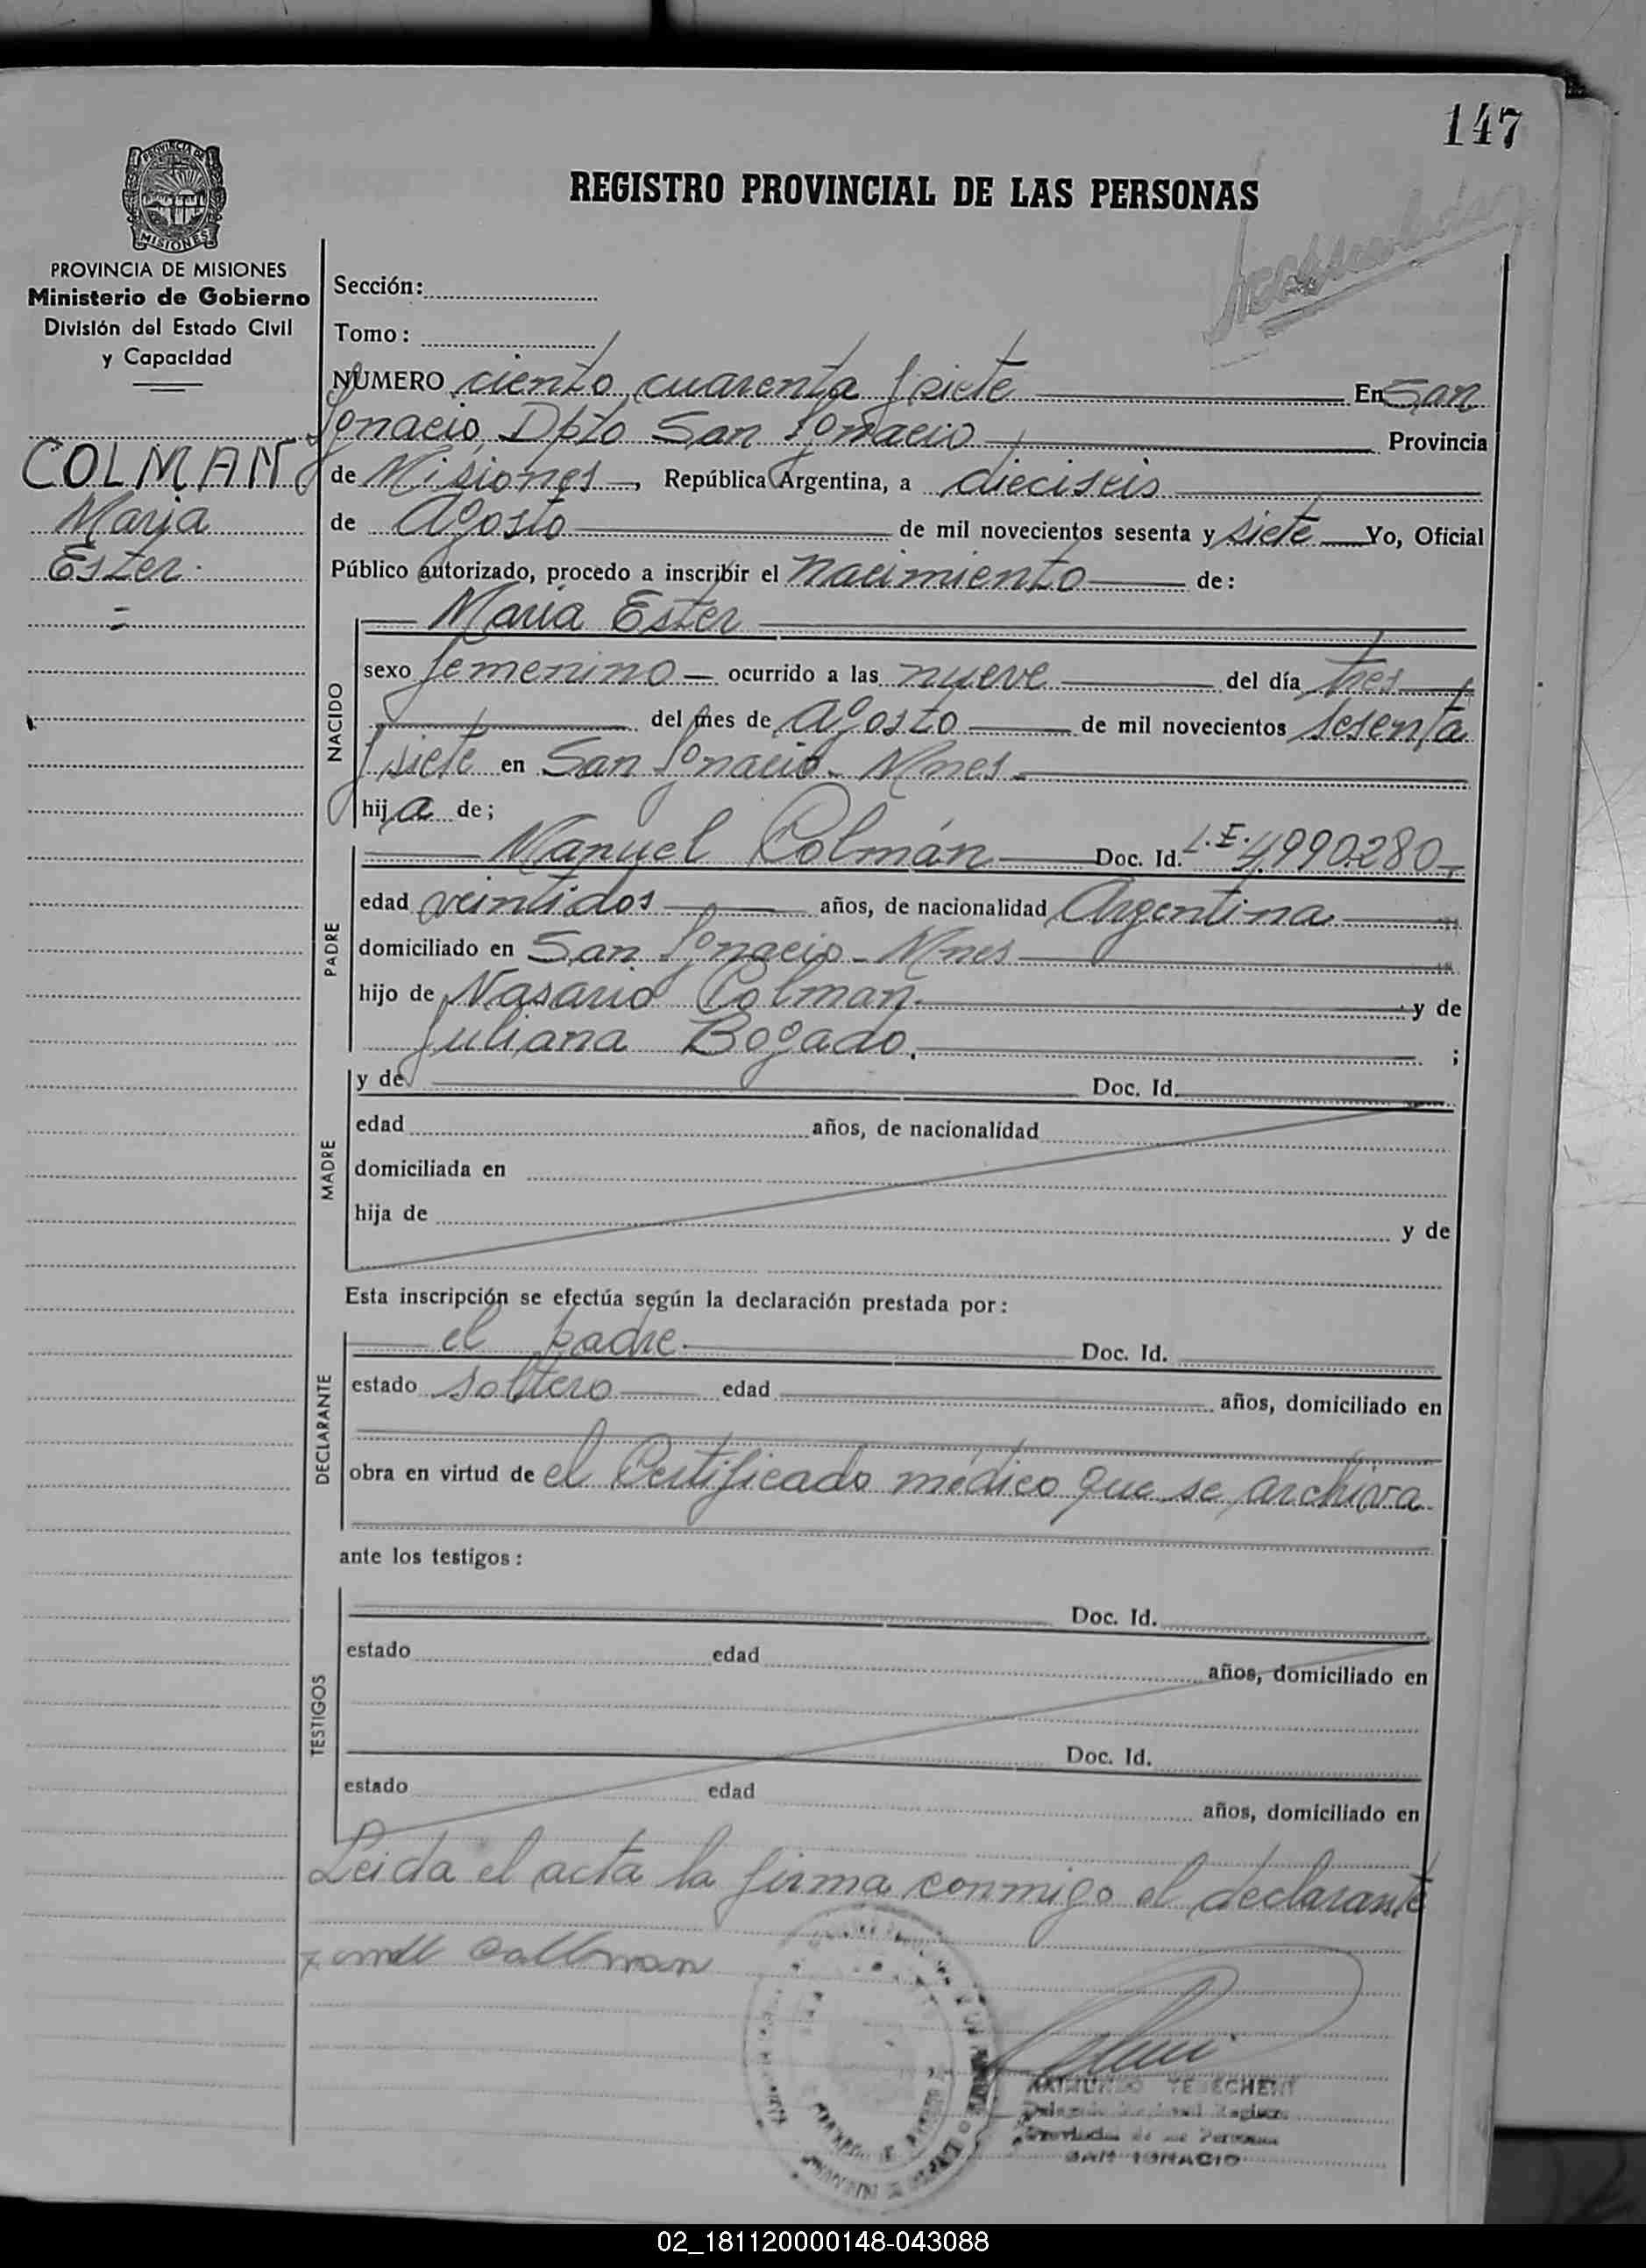 147
REGISTRO PROVINCIAL DE LAS PERSONAS
PROVINCIA DE
MISIONES
PROVINCIA DE MISIONES
Ministerio de Gobierno
División del Estado Civil
y Capacidad
COLMAN
Maria
Ester.
Sección:
Tomo:
NUMERO ciento cuarenta y siete En San
Ignacio, Dpto San Ignacio Provincia
de Misiones, República Argentina, a dieciseis
de Agosto de mil novecientos sesenta y siete Yo, Oficial
Público autorizado, procedo a inscribir el nacimiento de:
Maria Ester
NACIDO
sexo femenino ocurrido a las nueve del día tres
del mes de Agosto de mil novecientos sesenta
y siete en San Ignacio - Mnes -
hija de;
PADRE
Manuel Colmán Doc. Id. L.E. 4.990.280,
edad veintidos años, de nacionalidad Argentina
domiciliado en San Ignacio - Mnes
hijo de Nasario Colman y de
Juliana Bogado. ;
MADRE
y de Doc. Id.
edad años, de nacionalidad
domiciliada en
hija de y de
Esta inscripción se efectúa según la declaración prestada por:
DECLARANTE
el padre. Doc. Id.
estado soltero edad años, domiciliado en
obra en virtud de el Certificado médico que se archiva
ante los testigos:
TESTIGOS
Doc. Id.
estado edad años, domiciliado en
Doc. Id.
estado edad años, domiciliado en
Leida el acta la firma conmigo el declarante
Provincial de las Personas
SAN IGNACIO
02_181120000148-043088